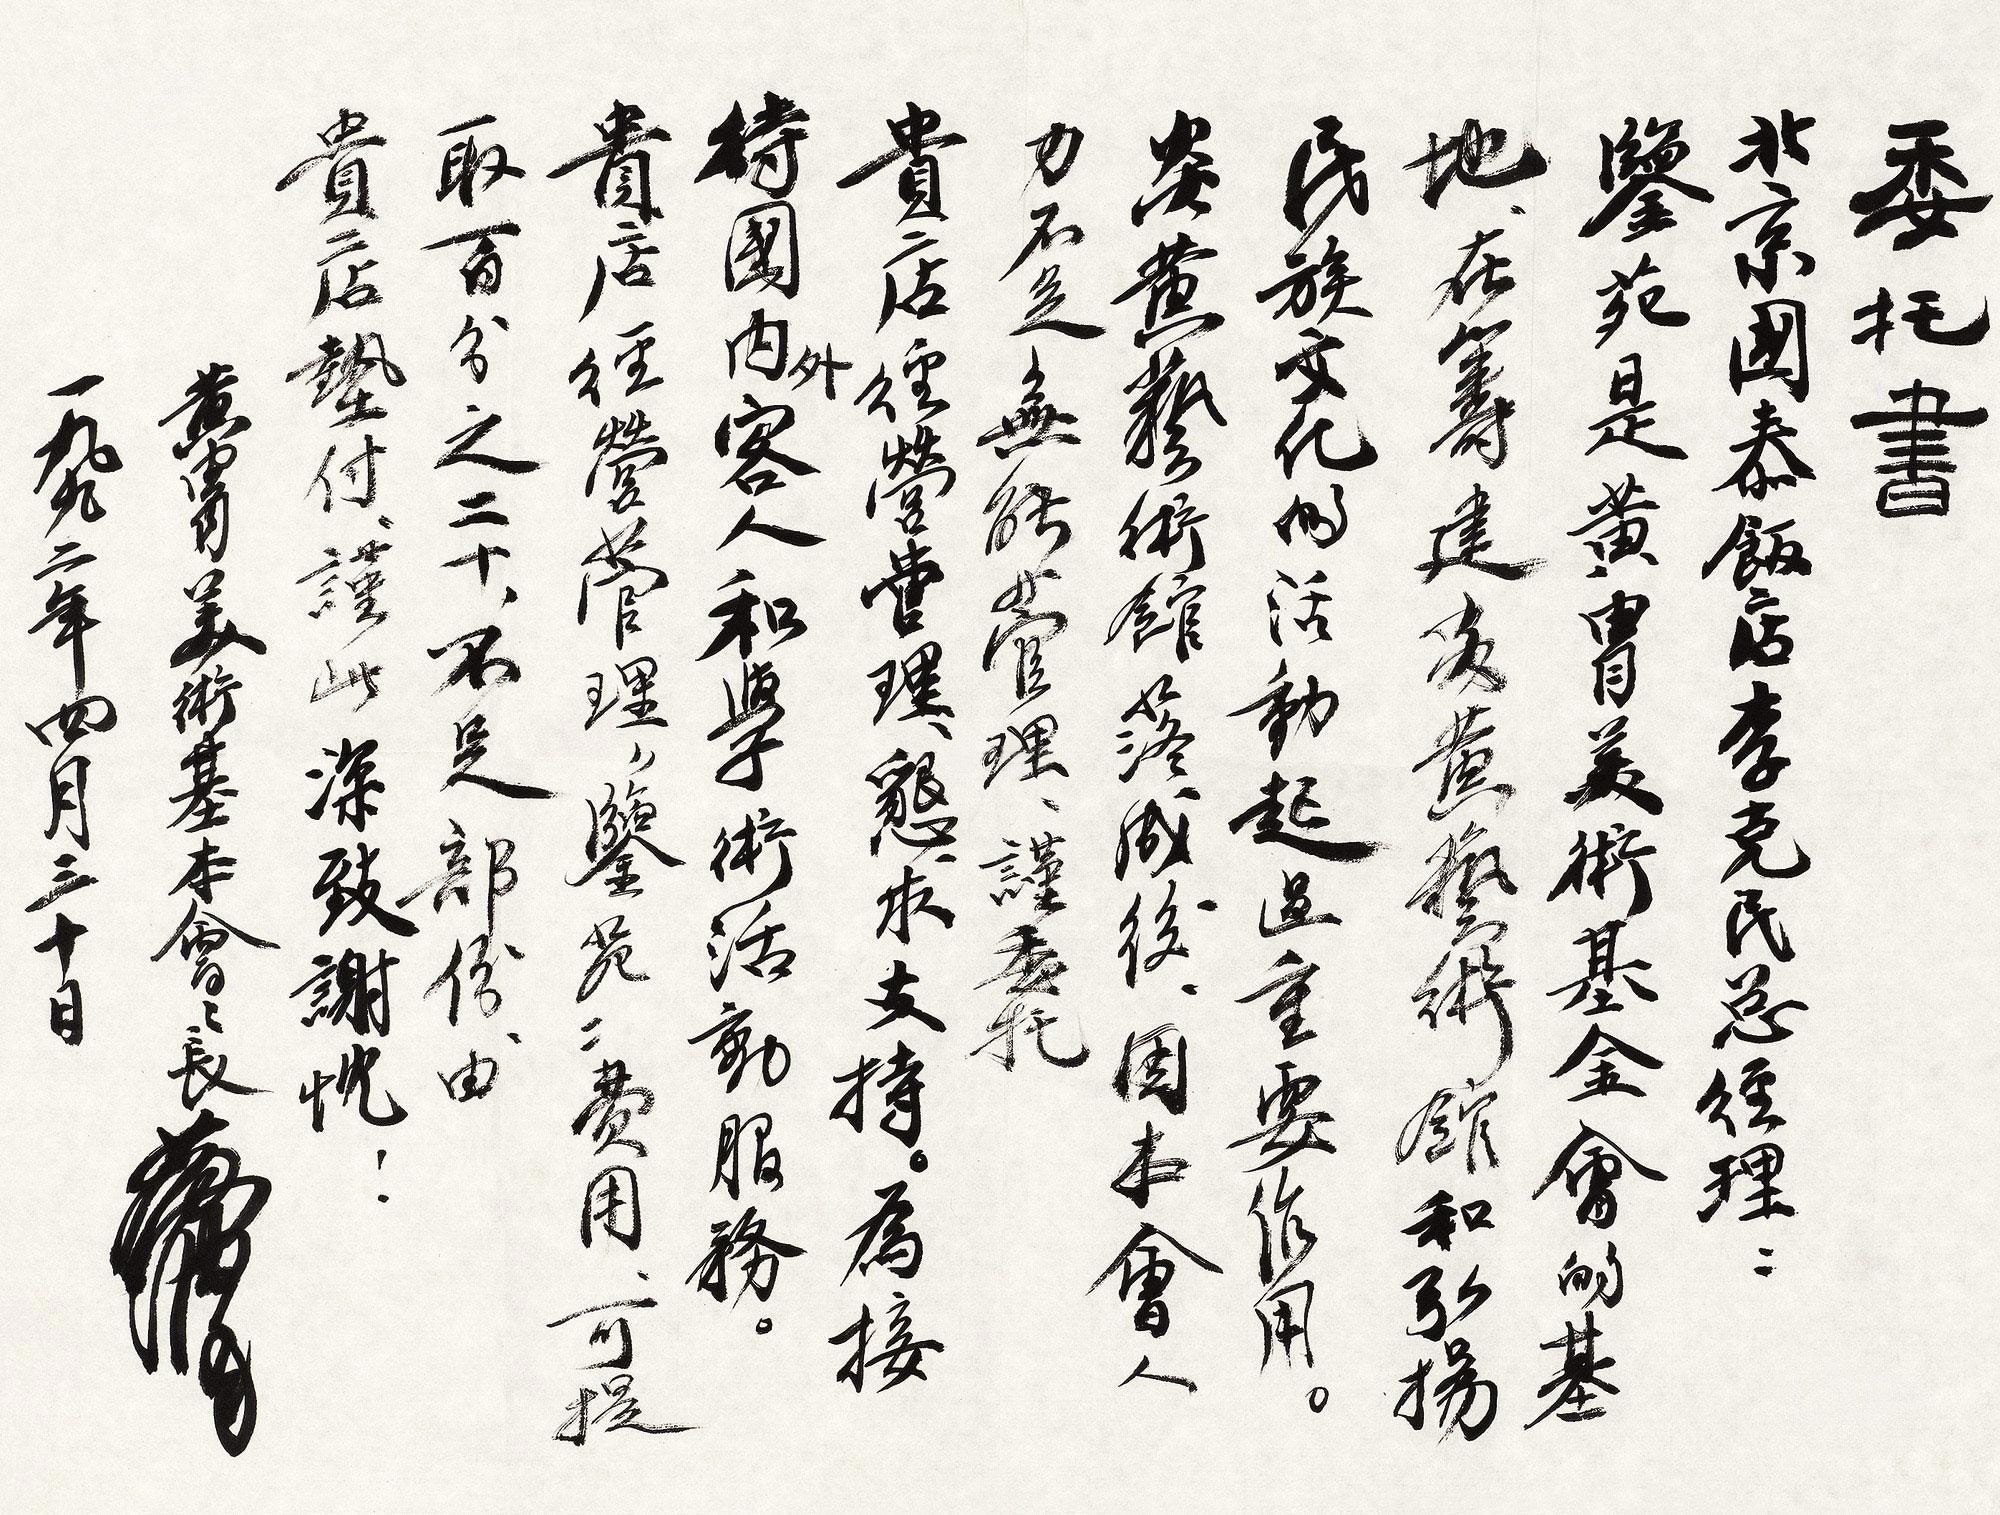 委托書
北京國泰飯店李克民总经理：
鑒苑是黄胄美術基金會的基
地、在筹建炎黄藝術館和弘揚
民族文化的活動起過重要作用。
炎黄藝術館落成後、因本會人
力不足無能管理、謹委托
貴店経營管理、懇求支持。為接
待國内外客人和學術活動服務。
貴店経營管理，鑒苑之費用、可提
取百分之二十、不足部份、由
貴店墊付、謹此深致謝忱！
黄胄美術基本會會長黄胄
一九九二年四月三十日